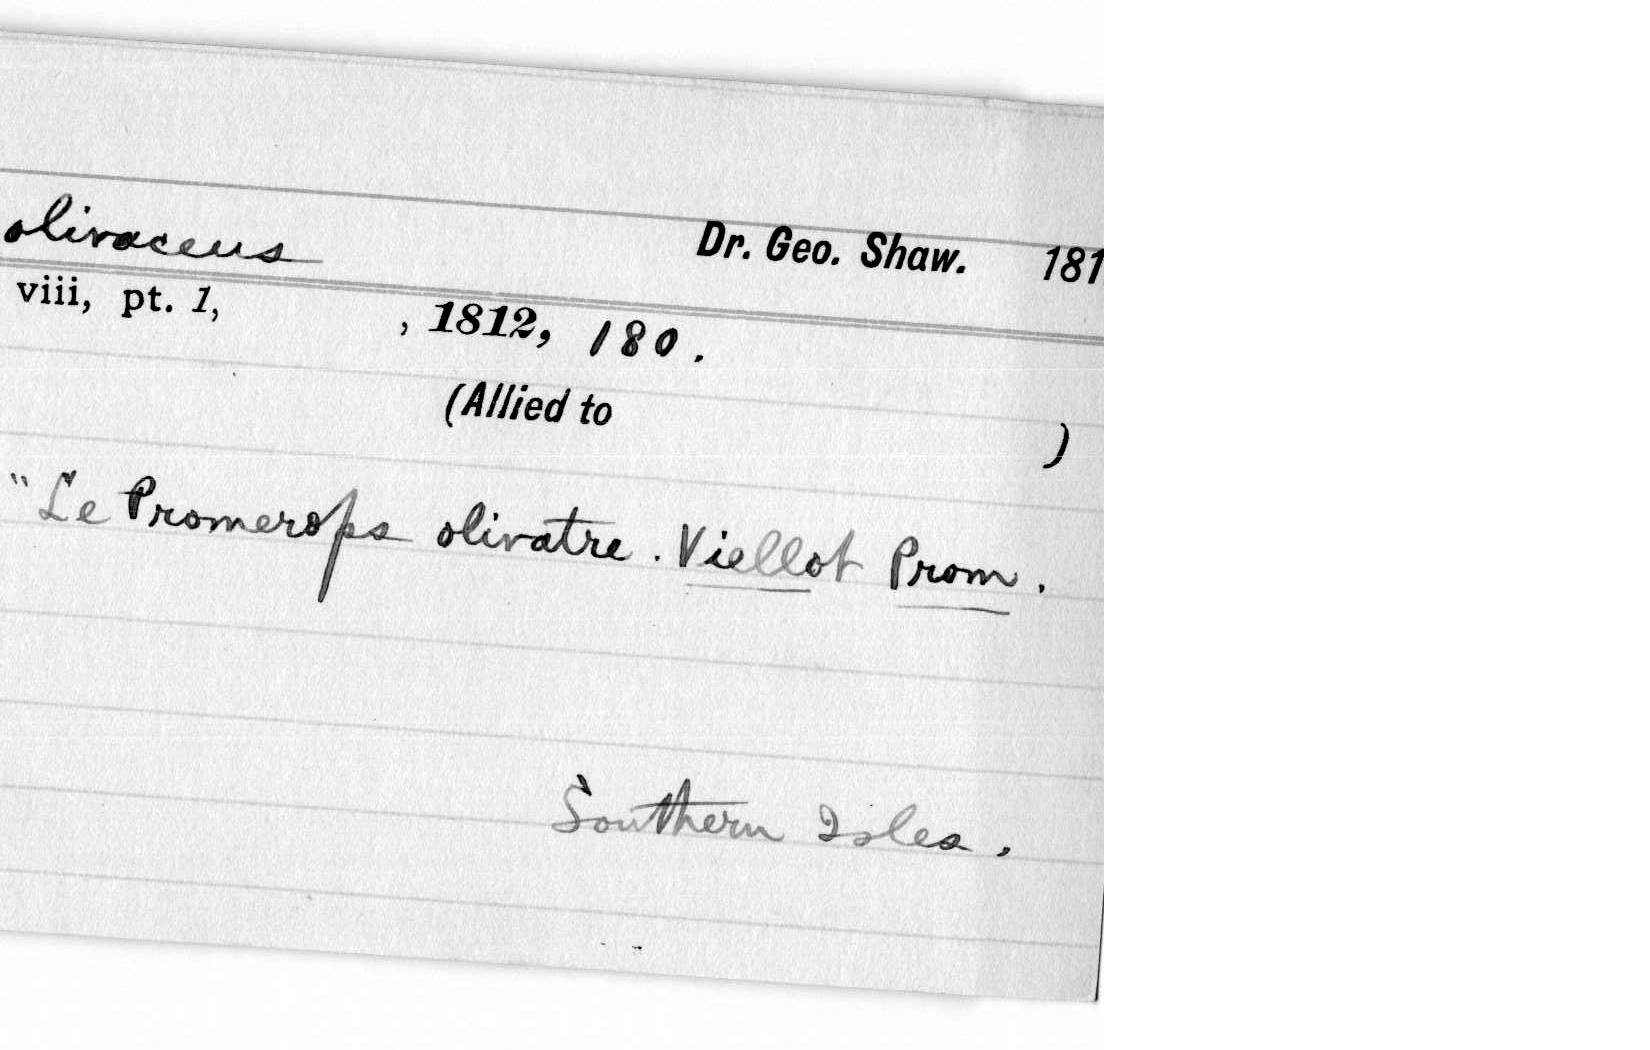 olivaceus Dr. Geo. Shaw. 181
viii, pt. 1, , 1812, 180.
(Allied to )
"Le Promerops olivatre. Viellot Prom.
Southern Isles.